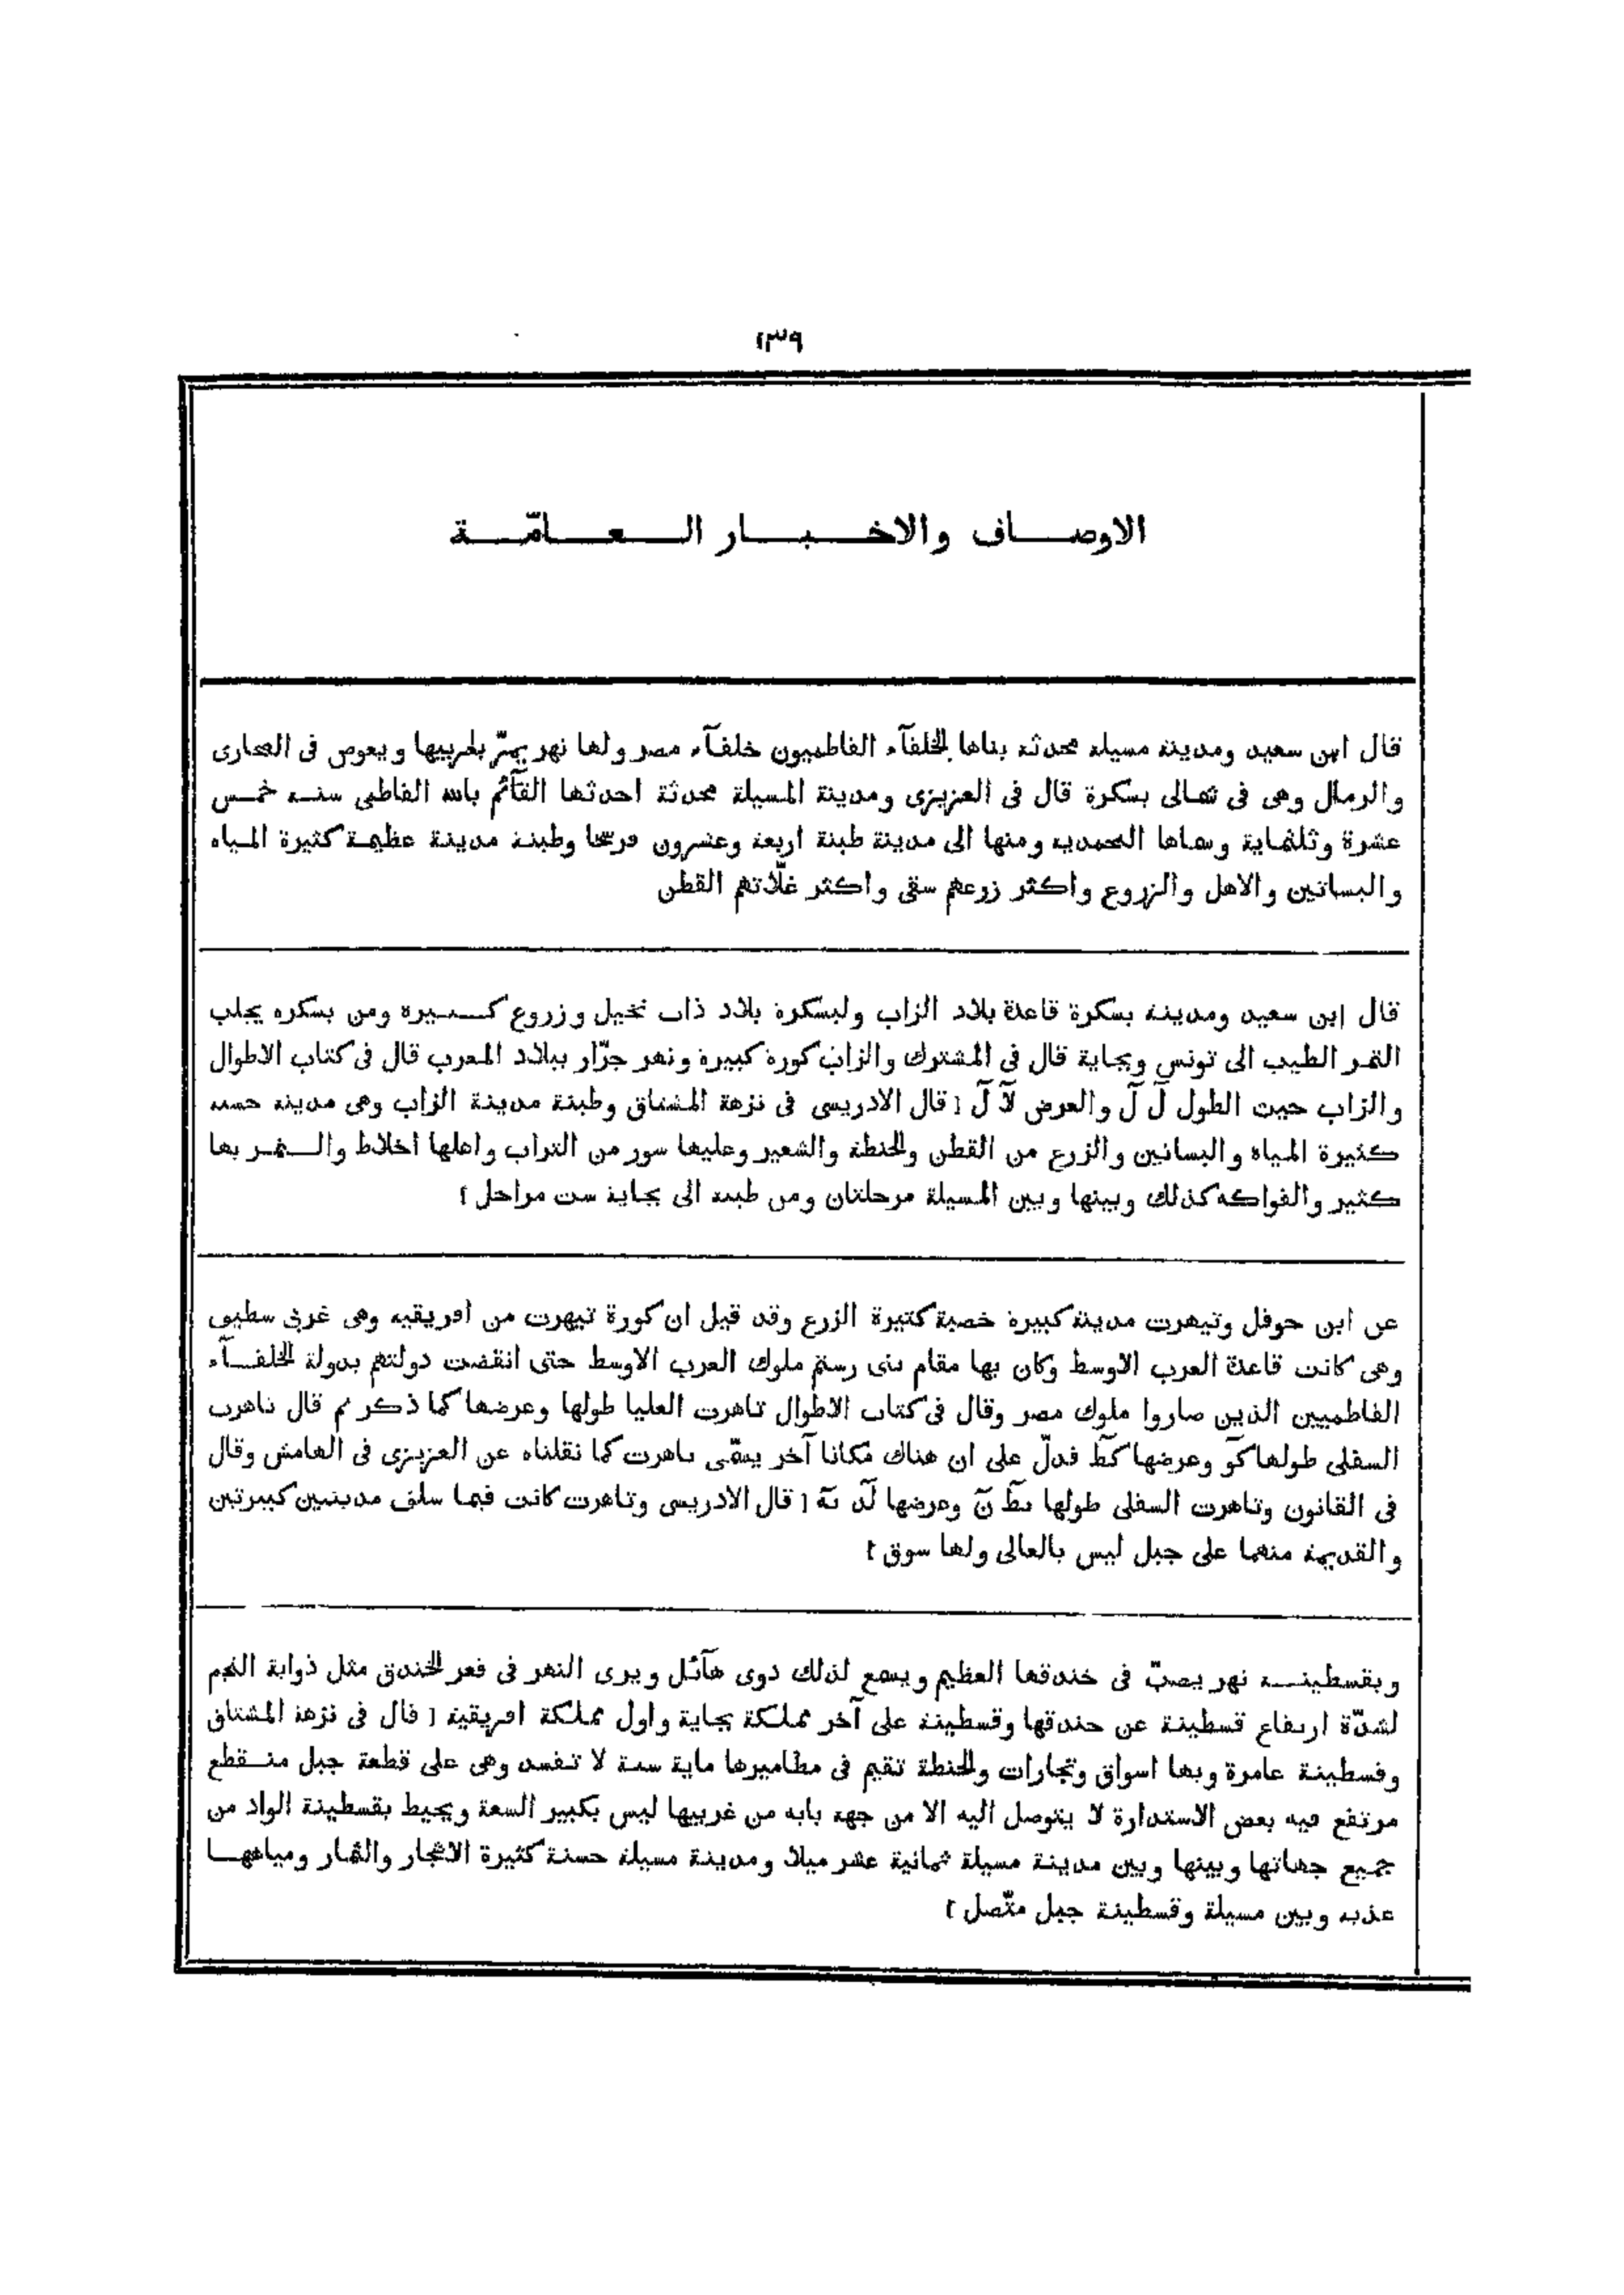 ١٣٩
الاوصاف والاخبار العامّة
قال ابن سعيد ومدينة مسيلة محدثة بناها الخلفآء الفاطميون خلفآء مصر ولها نهر يمرّ بغربيها ويغوص فى الصحارى
والرمال وهى فى شمالى بسكرة قال فى العزيزى ومدينة المسيلة محدثة احدثها القآئم بالله الفاطمى سنة خمس
عشرة وثلثماية وسماها المحمدية ومنها الى مدينة طبنة اربعة وعشرون فرسخا وطبنة مدينة عظيمة كثيرة المياه
والبساتين والاهل والزروع واكثر زرعهم سقى واكثر غلّاتهم القطن
قال ابن سعيد ومدينة بسكرة قاعدة بلاد الزاب ولبسكرة بلاد ذات نخيل وزروع كثيرة ومن بسكرة يجلب
التمر الطيب الى تونس وبجاية قال فى المشترك والزاب كورة كبيرة ونهر جرّار ببلاد المغرب قال فى كتاب الاطوال
والزاب حيث الطول لَ لَ والعرض لاَ لَ [ قال الادريسى فى نزهة المشتاق وطبنة مدينة الزاب وهى مدينة حسنة
كثيرة المياه والبساتين والزرع من القطن والحنطة والشعير وعليها سور من التراب واهلها اخلاط والتمر بها
كثير والفواكه كذلك وبينها وبين المسيلة مرحلتان ومن طبنة الى بجاية ست مراحل ]
عن ابن حوقل وتيهرت مدينة كبيرة خصبة كثيرة الزرع وقد قيل ان كورة تيهرت من افريقية وهى غربى سطيف
وهى كانت قاعدة الغرب الاوسط وكان بها مقام بنى رستم ملوك الغرب الاوسط حتى انقضت دولتهم بدولة الخلفآء
الفاطميين الذين صاروا ملوك مصر وقال فى كتاب الاطوال تاهرت العليا طولها وعرضها كما ذكر ثم قال تاهرت
السفلى طولها كَو وعرضها كَط فدلّ على ان هناك مكانا آخر يسمّى تاهرت كما نقلناه عن العزيزى فى الهامش وقال
فى القانون وتاهرت السفلى طولها يَط نَ وعرضها لَد نَه [ قال الادريسى وتاهرت كانت فيما سلف مدينتين كبيرتين
والقديمة منهما على جبل ليس بالعالى ولها سوق ]
وبقسطينة نهر يصبّ فى خندقها العظيم ويسمع لذلك دوى هآئل ويرى النهر فى قعر الخندق مثل ذوابة النجم
لشدّة ارتفاع قسطينة عن خندقها وقسطينة على آخر مملكة بجاية واول مملكة افريقية [ قال فى نزهة المشتاق
وقسطينة عامرة وبها اسواق وتجارات والحنطة تقيم فى مطاميرها ماية سنة لا تفسد وهى على قطعة جبل منقطع
مرتفع فيه بعض الاستدارة لا يتوصل اليه الا من جهة بابه من غربيها ليس بكبير السعة ويحيط بقسطينة الواد من
جميع جهاتها وبينها وبين مدينة مسيلة ثمانية عشر ميلا ومدينة مسيلة حسنة كثيرة الاشجار والثمار ومياهها
عذبة وبين مسيلة وقسطينة جبل متّصل ]